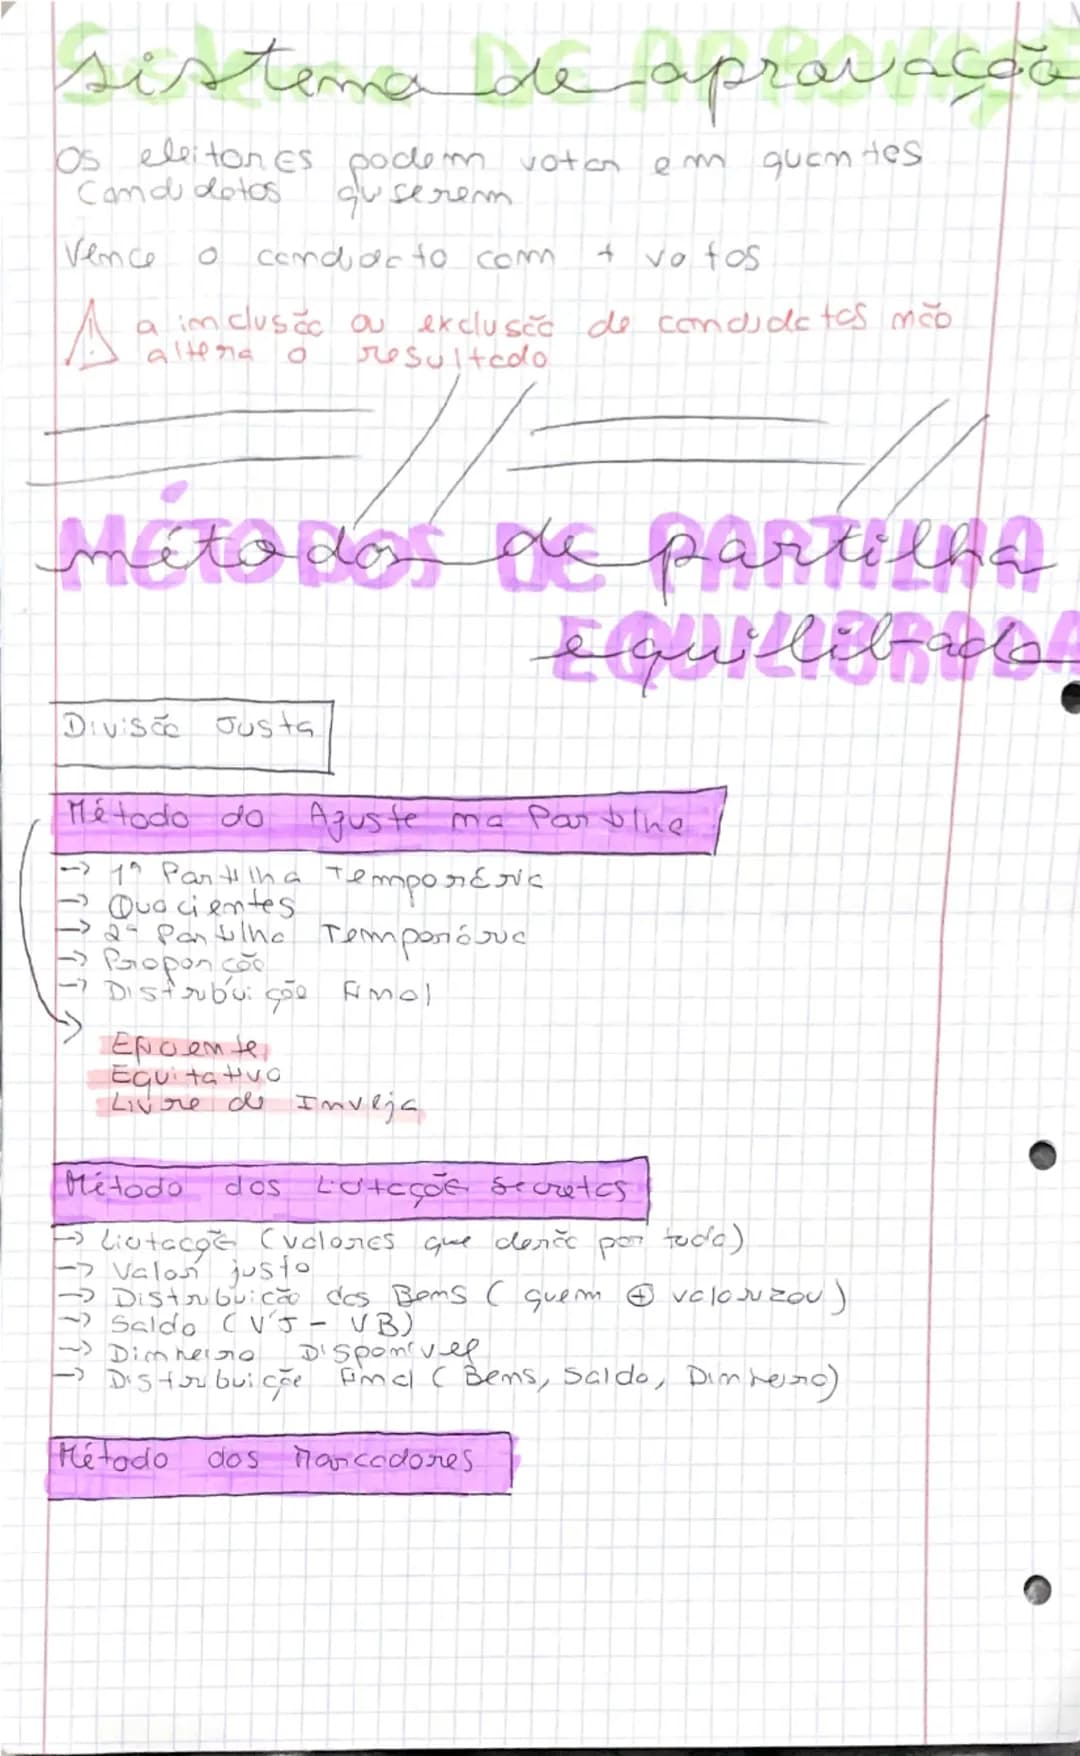 sistema de aprovação
Os eleitores podem votar em quantes
Candidatos quserem
Vence o candidacto com + votos
a inclusão ou exclusão de candidatos não
altera o resultado
métodos de partilha
equilibrada
Divisão Justa
Método do Ajuste na Partilha
→ 1ª Partilha Temporária
→ Quocientes
→ 2ª Partilha Temporária
→ Proporção
→ Distribuição Final
Eficiente,
Equitativo
Livre de Inveja
Método das Licitação Secretas
→ Licitação (valores que darão por tudo)
→ Valor justo
→ Distribuicão dos Bens (quem ⊕ valorizou)
→ Saldo (VJ - VB)
→ Dinheiro Disponível
→ Distribuição Final (Bens, Saldo, Dinheiro)
Método dos Marcadores